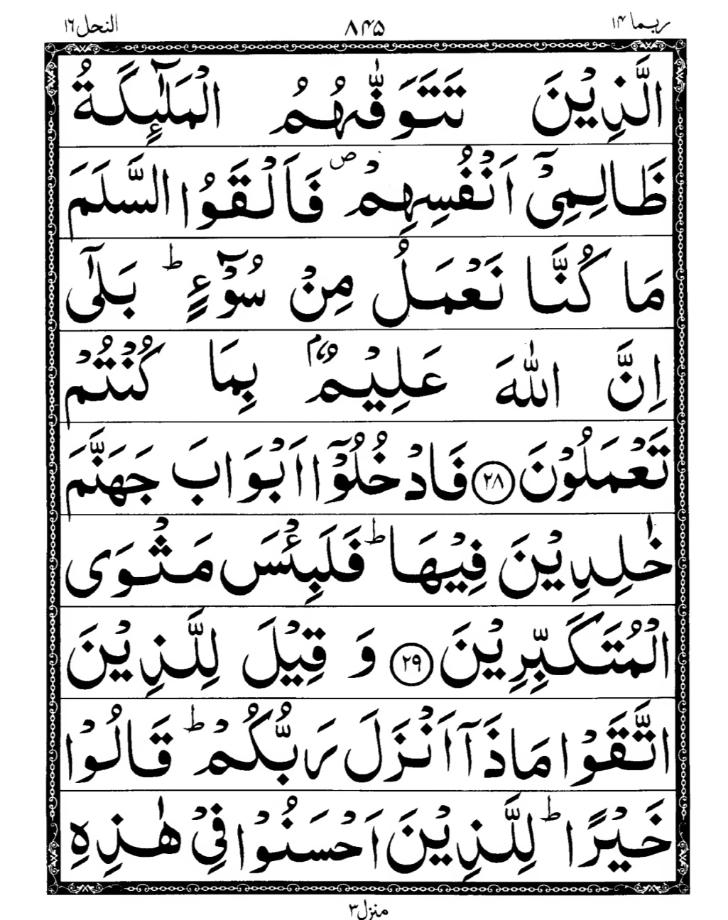 النحل ۱۶ ۸۴۵ ربما ۱۴
الَّذِيْنَ تَتَوَفّٰىهُمُ الْمَلٰٓئِكَةُ
ظَالِمِيْٓ اَنْفُسِهِمْ ۪ فَاَلْقَوُا السَّلَمَ
مَا كُنَّا نَعْمَلُ مِنْ سُوْٓءٍ ؕ بَلٰٓى
اِنَّ اللّٰهَ عَلِيْمٌۢ بِمَا كُنْتُمْ
تَعْمَلُوْنَ ﴿۲۸﴾ فَادْخُلُوْٓا اَبْوَابَ جَهَنَّمَ
خٰلِدِيْنَ فِيْهَا ؕ فَلَبِئْسَ مَثْوَى
الْمُتَكَبِّرِيْنَ ﴿۲۹﴾ وَ قِيْلَ لِلَّذِيْنَ
اتَّقَوْا مَاذَاۤ اَنْزَلَ رَبُّكُمْ ؕ قَالُوْا
خَيْرًا ؕ لِلَّذِيْنَ اَحْسَنُوْا فِيْ هٰذِهِ
منزل ۳